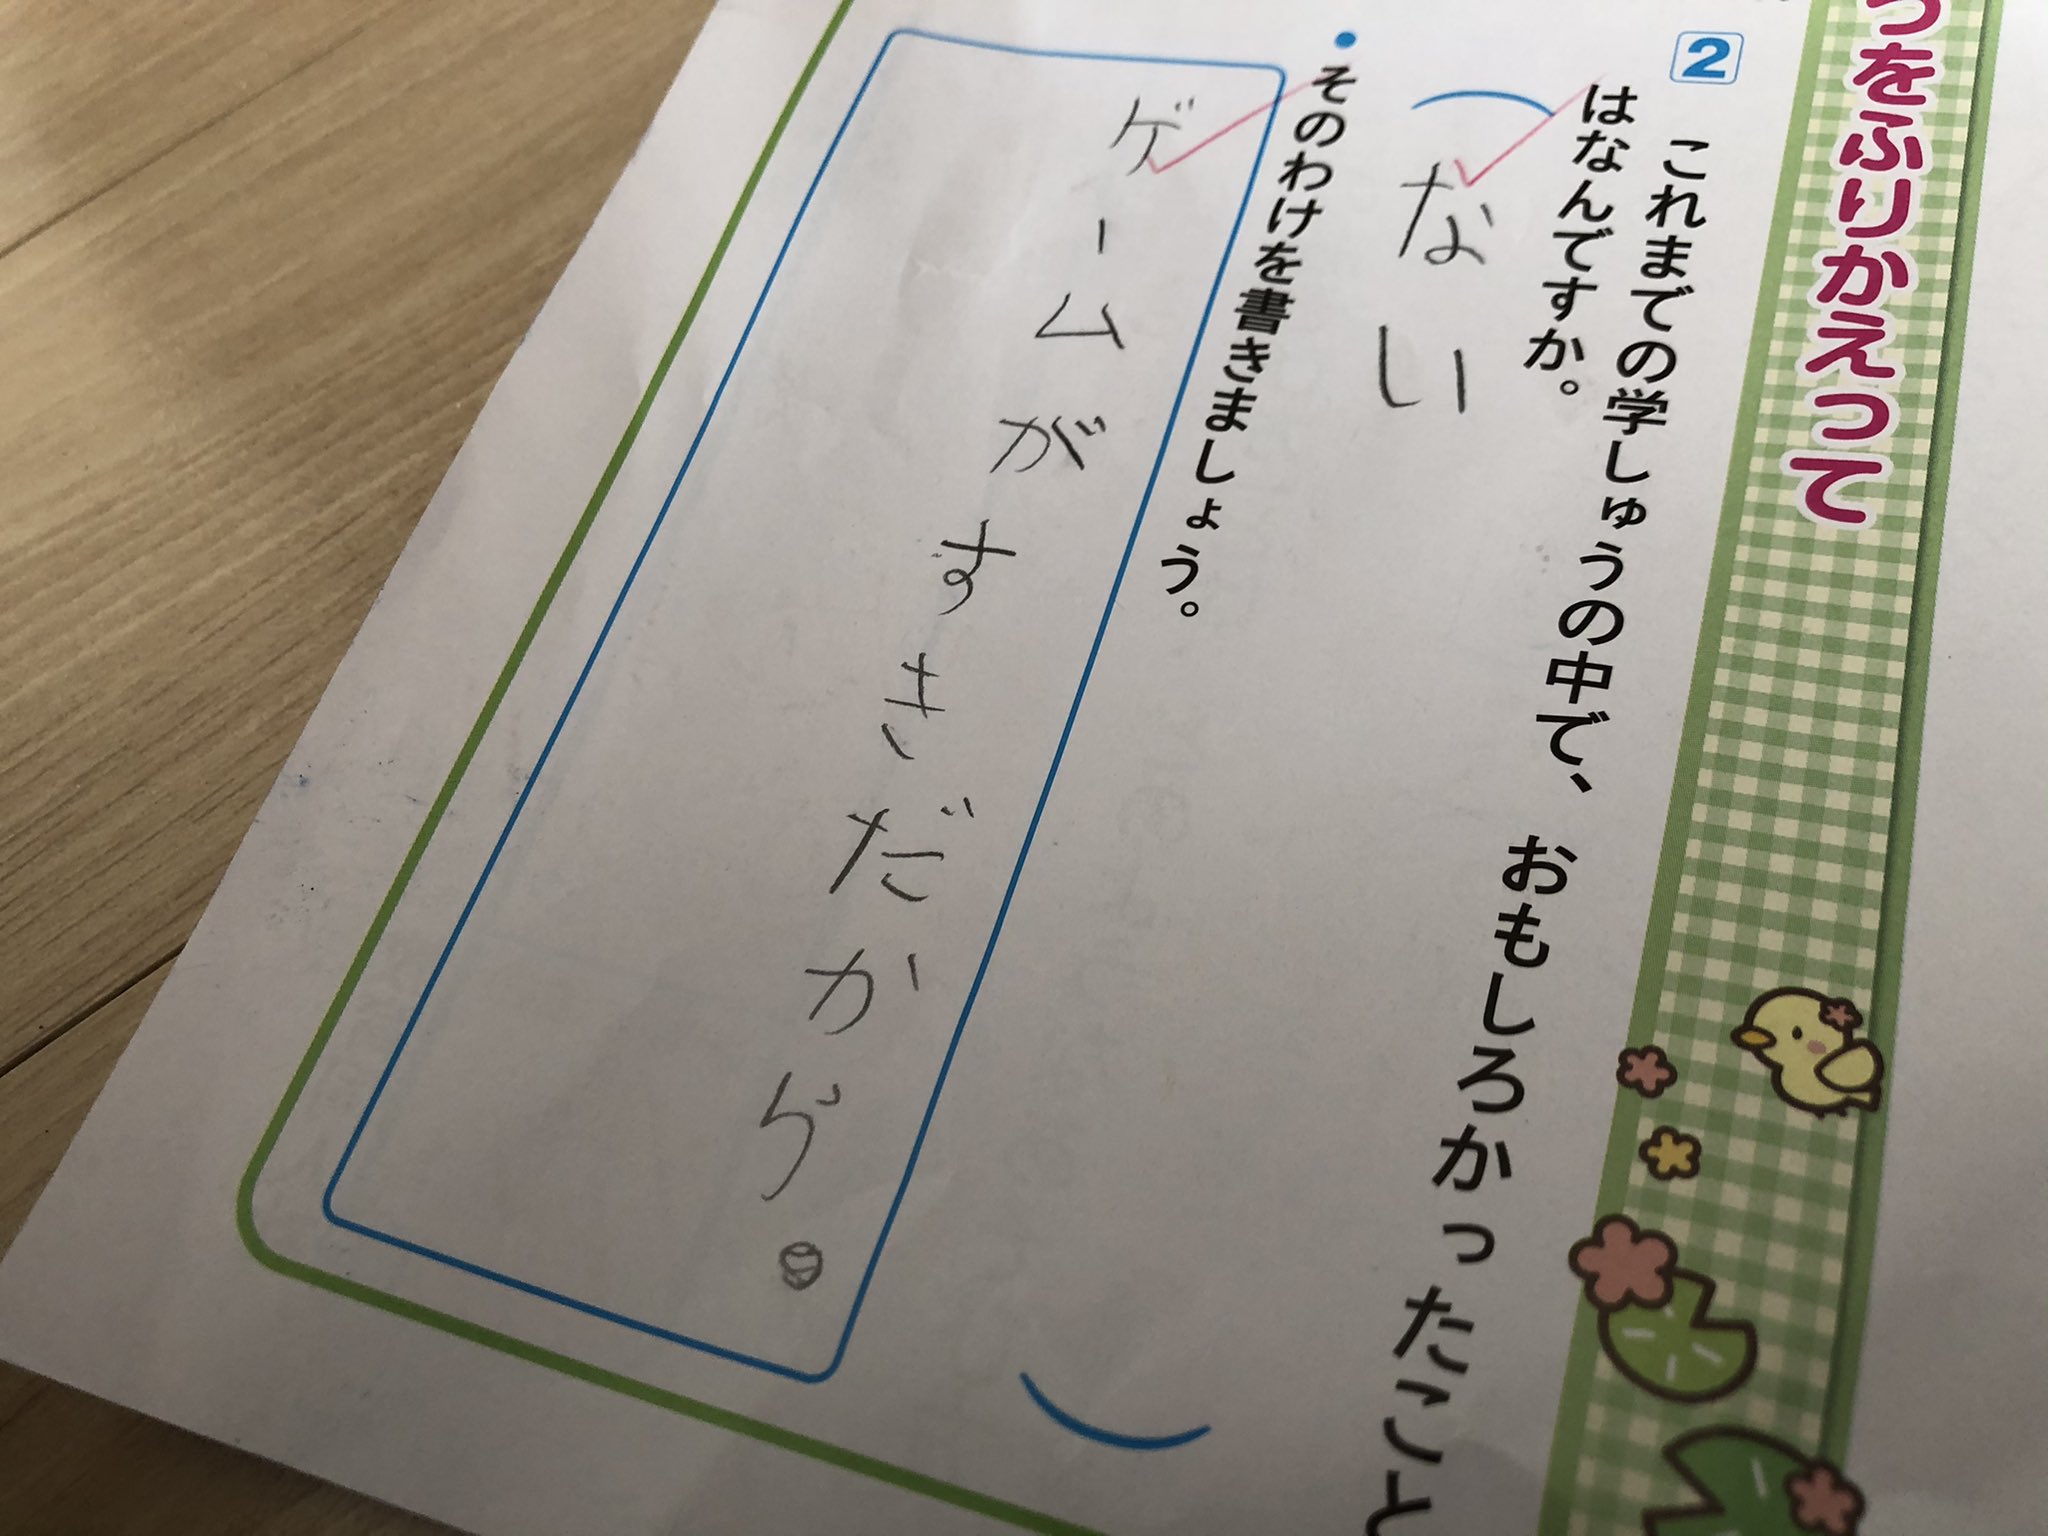 つをふりかえって
2
これまでの学しゅうの中で、おもしろかったこと
はなんですか。
ない
・そのわけを書きましょう。
ゲームがすきだから。